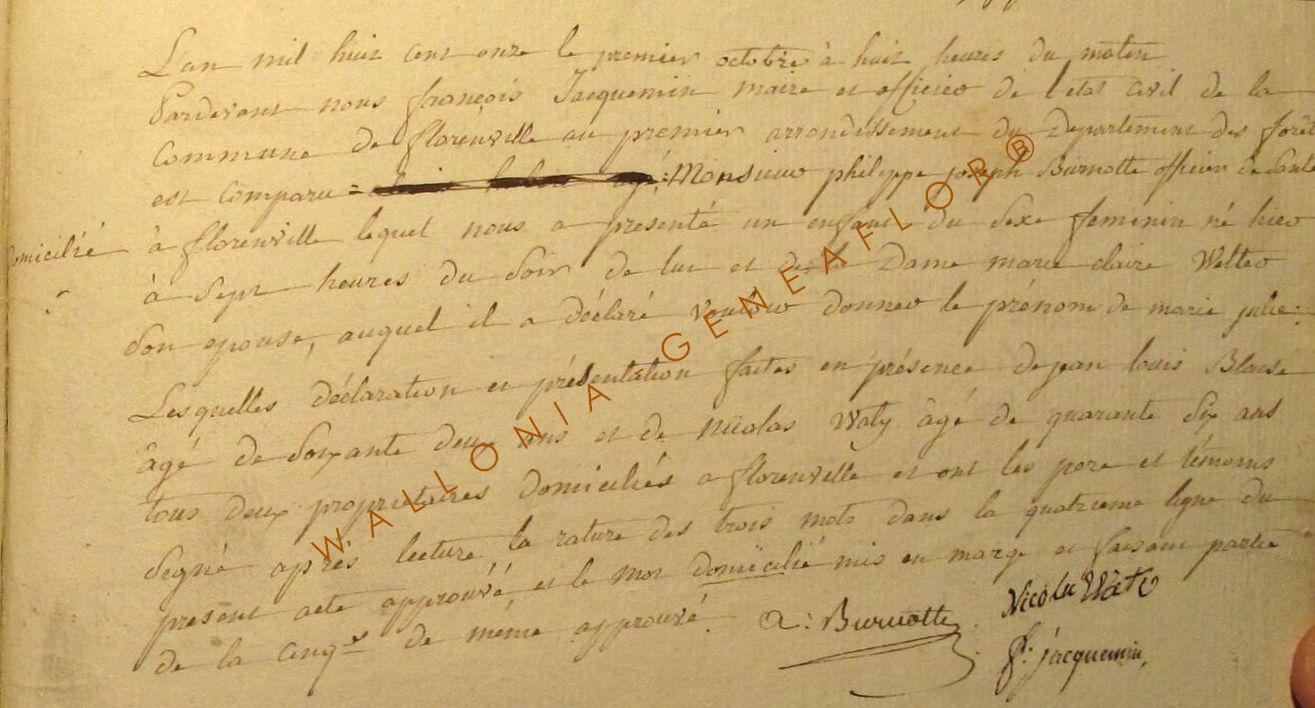 L'an mil huit cent onze le premier octobre à huit heures du matin
Pardevant nous françois Jacquemin maire et officier de l'etat civil de la
commune de florenville au premier arrondissement du Departement des forêts
est comparu = Monsieur philippe joseph Burnotte officier de santé
domicilié à florenville lequel nous a presenté un enfant du sexe feminin né hier
à sept heures du soir de lui et de la Dame marie claire Welter
son epouse, auquel il a déclaré vouloir donner le prénom de marie julie.
Lesquelles déclaration et présentation faites en présence de jean louis Blaise
âgé de soixante deux ans et de nicolas Waty âgé de quarante six ans
tous deux proprietaires domiciliés a florenville et ont les pere et témoins
signé après lecture la rature des trois mots dans la quatrieme ligne du
present acte approuvé et le mot domicilié mis en marge et faisant partie
de la cinq.e de même approuvé.
Burnotte
Nicolas
f: jacquemin,
WALLONIA - GENEAFLOR®